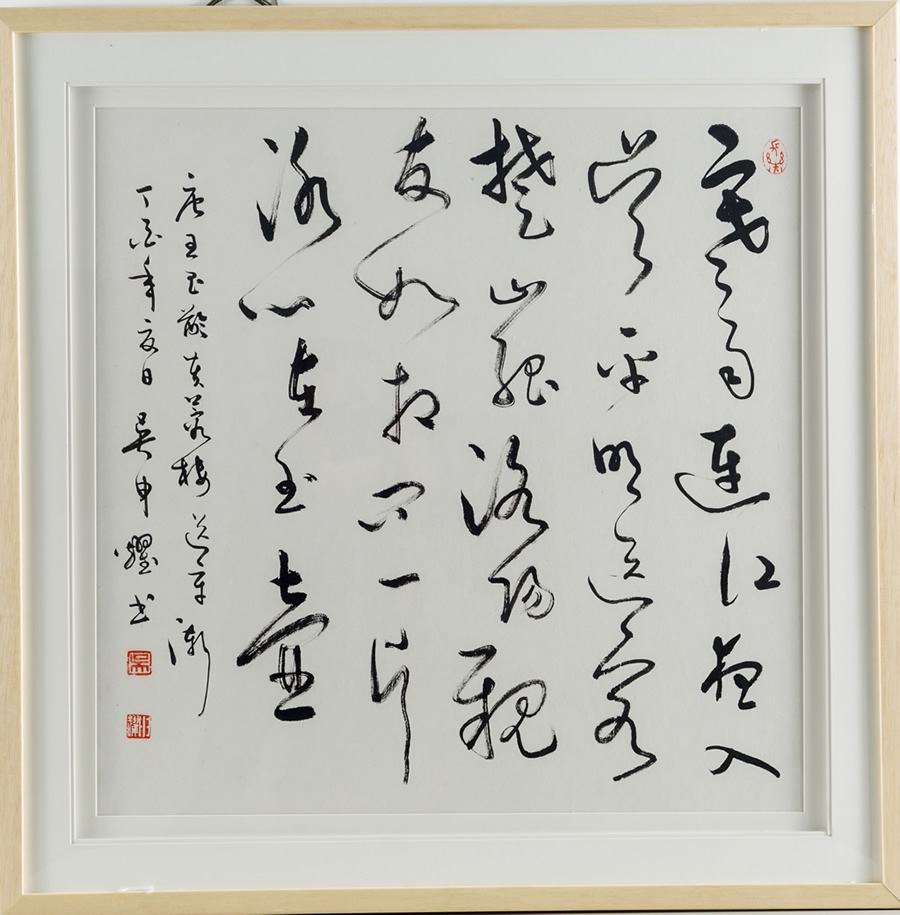 寒雨連江夜入
吳平明送客
楚山孤洛陽親
友如相問一片
冰心在玉壺
唐王昌齡芙蓉樓送辛漸
丁酉年夏日吳申耀書